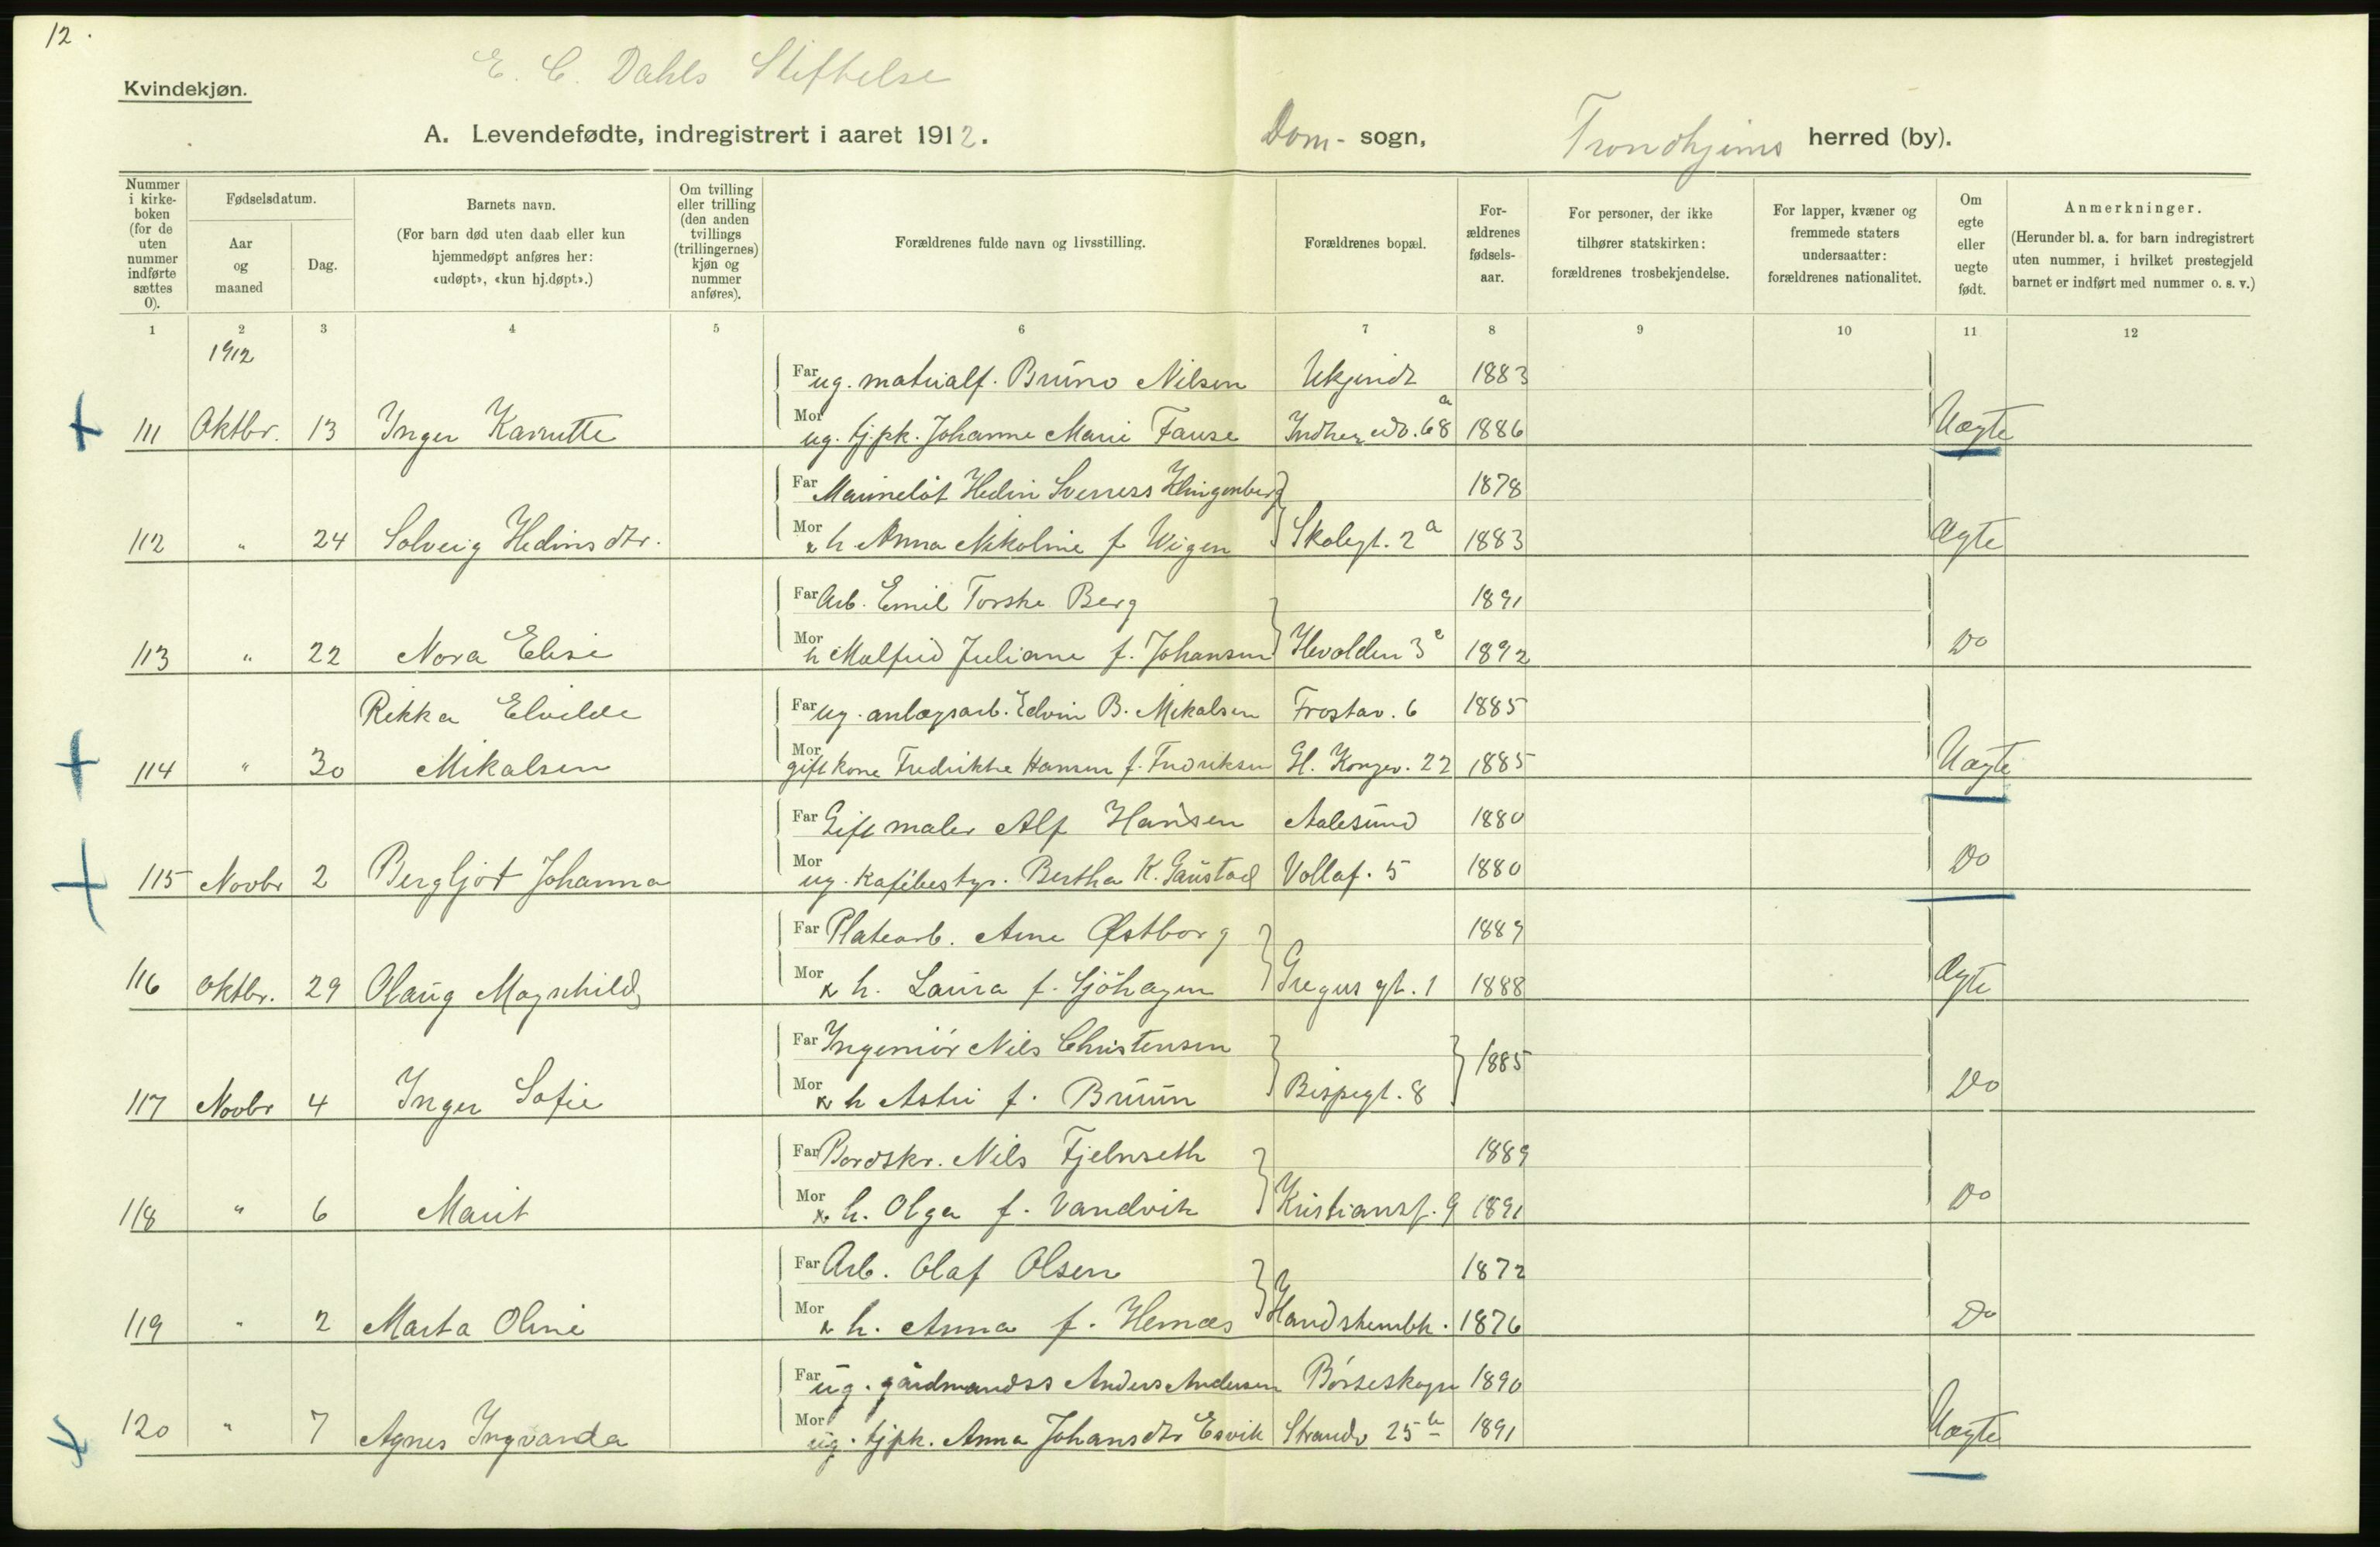 12.
E. C. Dahls Stiftelse
Kvindekjøn.
A. Levendefødte, indregistrert i aaret 1912. Dom- sogn, Trondhjems herred (by).
Nummer i kirke-boken (for de uten nummer indførte sættes 0).
Fødselsdatum.
Aar og maaned
Dag.
Barnets navn.
(For barn død uten daab eller kun hjemmedøpt anføres her: «udøpt», «kun hj.døpt».)
Om tvilling eller trilling (den anden tvillings (trillingernes) kjøn og nummer anføres).
Forældrenes fulde navn og livsstilling.
Forældrenes bopæl.
For-ældrenes fødsels-aar.
For personer, der ikke tilhører statskirken: forældrenes trosbekjendelse.
For lapper, kvæner og fremmede staters undersaatter: forældrenes nationalitet.
Om egte eller uegte født.
Anmerkninger.
(Herunder bl. a. for barn indregistrert uten nummer, i hvilket prestegjeld barnet er indført med nummer o. s. v.)
1 2 3 4 5 6 7 8 9 10 11 12
1912
Far ug. materialf. Bruno Nilsen Ukjendt 1883
111 Oktbr. 13 Inger Mor ug. tj.pk. Johanne Marie Fause 68a 1886 Uægte
Far Hedin Sverress Klingenberg 1878
112 " 24 Solveig Hedinsdtr. Mor h. Anna Nikoline f. Wigen Skolegt. 2a 1883 Ægte
Far Arb. Emil Torske Berg 1891
113 " 22 Nora Elise Mor h Malfrid Juliane f. Johansen 1892 Do
Rikka Elvilde Far ug. anlægsarb. Edvin B. Mikalsen Frostav. 6 1885
114 " 30 Mikalsen Mor gift kone Fredrikke Hansen f. Fredriksen Gl. Kongev. 22 1885 Uægte
Far Gift maler Alf Hansen Aalesund 1880
115 Novbr 2 Bergljot Johanna Mor ug. kafébestyr. Bertha K. Gaustad Vollaf. 5 1880 Do
Far Platearb. Arne Østborg 1889
116 Oktbr. 29 Olaug Magnhild Mor h. Laura f. Sjöhagen Gregus gt. 1 1888 Ægte
Far Ingeniör Nils Christensen 1885
117 Novbr 4 Inger Sofie Mor h Astri f. Bruun Bispegt. 8 Do
Far Bordskr. Nils Fjelnseth 1889
118 " 6 Marit Mor h. Olga f. Vandvik Kristiansf. 9 1891 Do
Far Arb. Olaf Olsen 1872
119 " 2 Marta Oline Mor h. Anna f. Hernæs 1876 Do
Far ug. gårdmandss Anders Andersen Børseskogn 1890
120 " 7 Agnes Ingvarda Mor ug. tjpk. Anna Johansdtr Esvik Strandv 25b 1891 Uægte